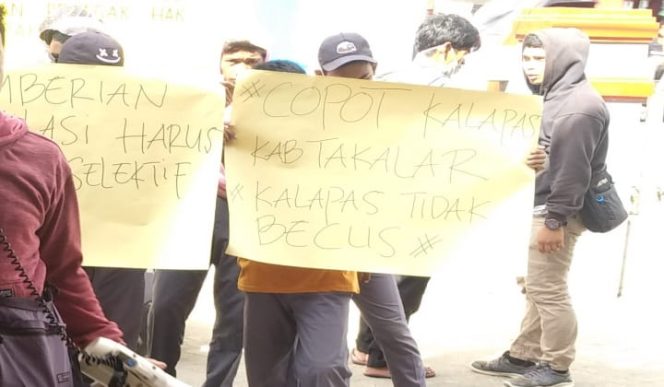 MBERIAN
ASI HARUS
SELEKTIF
#COPOT KALAPAS
KAB TAKALAR
#KALAPAS TIDAK
BECUS#